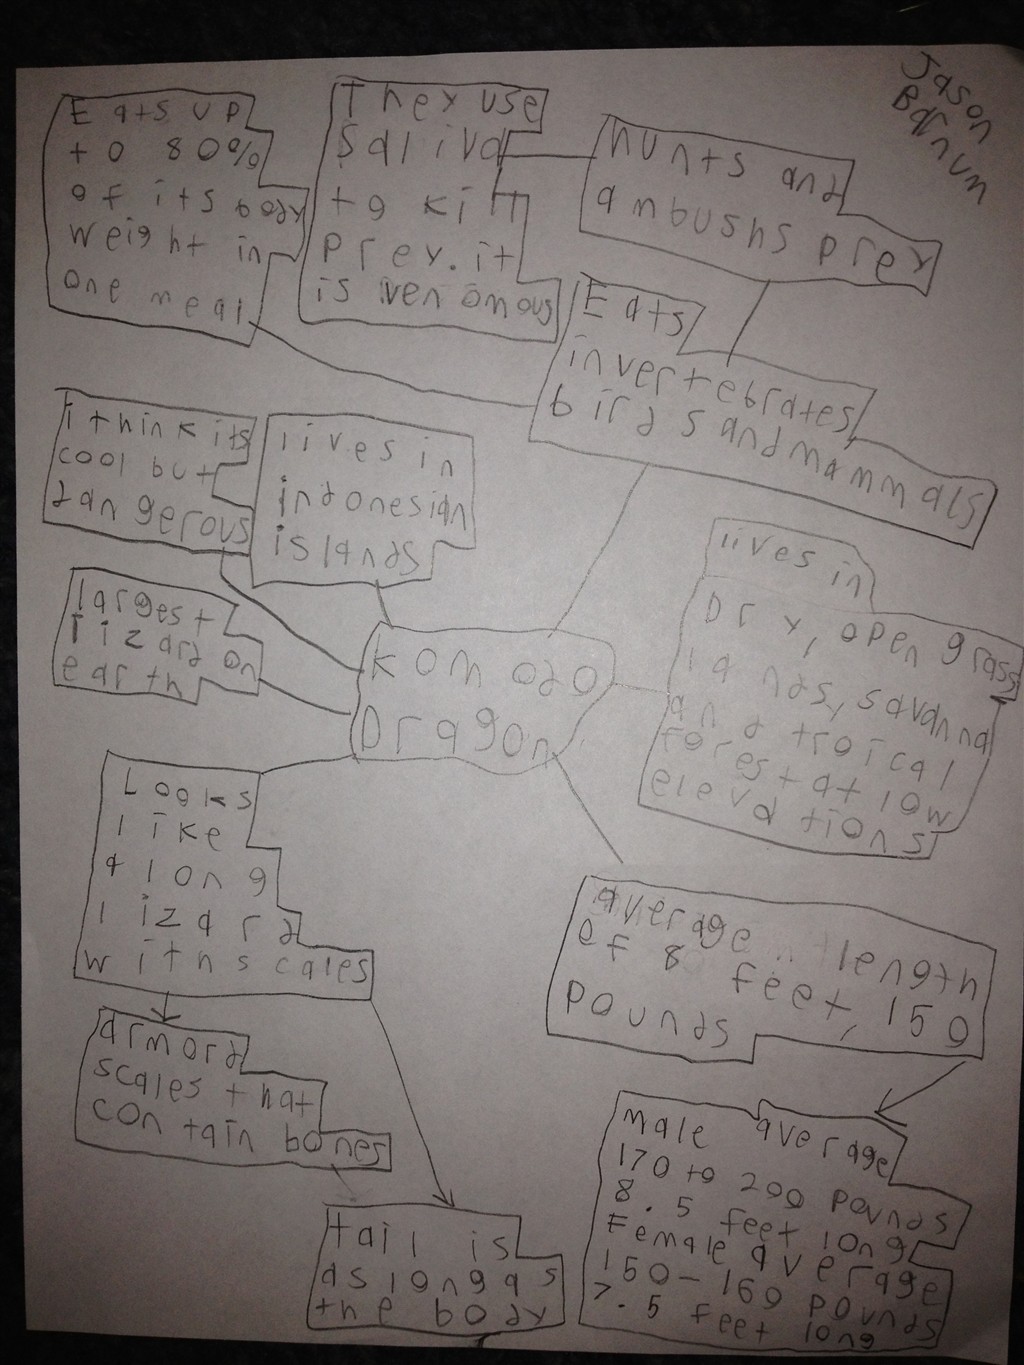 Jason
Barnum
Eats up
to 80%
of its body
weight in
one meal
They use
Saliva
to kill
prey. it
is venomous
hunts and
ambushs prey
Eats
invertebrates
birds and mammals
i think its
cool but
dangerous
lives in
indonesian
islands
largest
lizard on
earth
komodo
Dragon
lives in
Dry, open grass
lands, savanna
and troical
forest at low
elevations
Looks
like
a long
lizard
with scales
average length
of 8 feet, 150
pounds
armord
scales that
contain bones
male average
170 to 200 pounds
8.5 feet long
Female average
150-160 pounds
7.5 feet long
tail is
as long as
the body